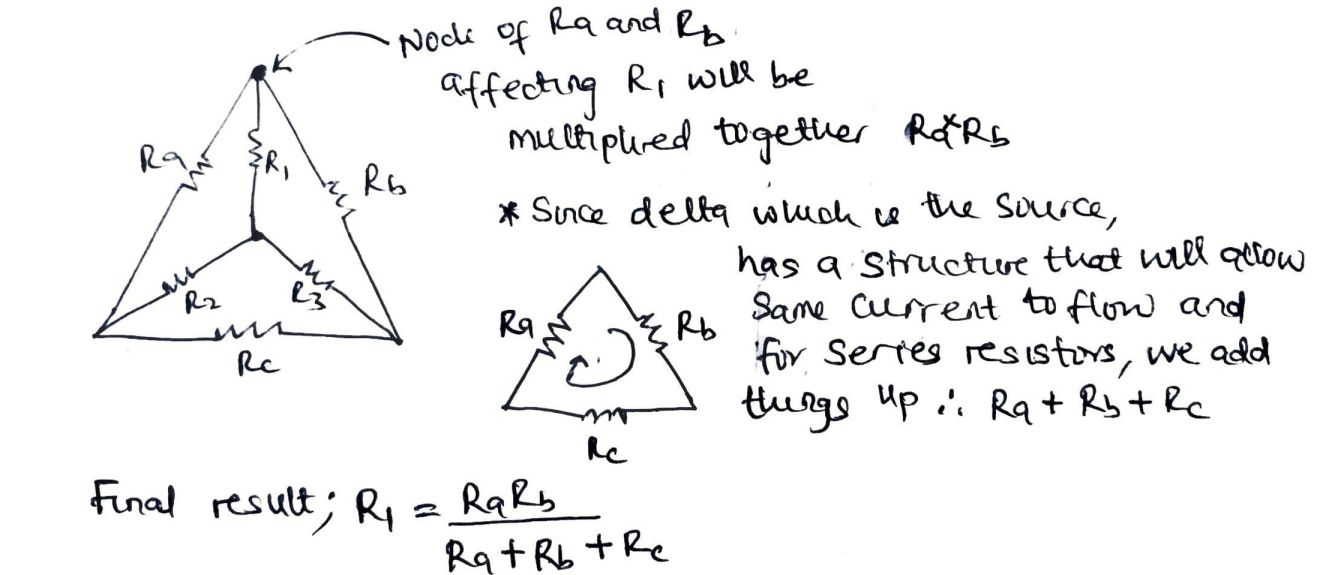 Node of Ra and Rb
affecting R1 will be
multiplied together Ra*Rb
Ra
R1
Rb
R2
R3
Rc
* Since delta which is the source,
has a structure that will allow
same current to flow and
for series resistors, we add
things up ∴ Ra + Rb + Rc
Ra
Rb
Rc
Final result; R1 = RaRb
Ra + Rb + Rc